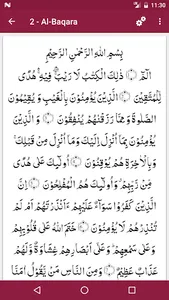 11:30
2 - Al-Baqara
بِسْمِ اللهِ الرَّحْمٰنِ الرَّحِيْمِ
الٓمّٓ ۝ ذٰلِكَ الْكِتٰبُ لَا رَيْبَ ۛ فِيْهِ ۛ هُدًى
لِّلْمُتَّقِيْنَ ۝ الَّذِيْنَ يُؤْمِنُوْنَ بِالْغَيْبِ وَيُقِيْمُوْنَ
الصَّلٰوةَ وَمِمَّا رَزَقْنٰهُمْ يُنْفِقُوْنَ ۝ وَالَّذِيْنَ
يُؤْمِنُوْنَ بِمَآ اُنْزِلَ اِلَيْكَ وَمَآ اُنْزِلَ مِنْ قَبْلِكَ ۚ
وَبِالْاٰخِرَةِ هُمْ يُوْقِنُوْنَ ۝ اُولٰٓئِكَ عَلٰى هُدًى
مِّنْ رَّبِّهِمْ ۙ وَاُولٰٓئِكَ هُمُ الْمُفْلِحُوْنَ ۝ اِنَّ
الَّذِيْنَ كَفَرُوْا سَوَآءٌ عَلَيْهِمْ ءَاَنْذَرْتَهُمْ اَمْ لَمْ
تُنْذِرْهُمْ لَا يُؤْمِنُوْنَ ۝ خَتَمَ اللهُ عَلٰى قُلُوْبِهِمْ
وَعَلٰى سَمْعِهِمْ ۗ وَعَلٰٓى اَبْصَارِهِمْ غِشَاوَةٌ وَّلَهُمْ
عَذَابٌ عَظِيْمٌ ۝ وَمِنَ النَّاسِ مَنْ يَّقُوْلُ اٰمَنَّا